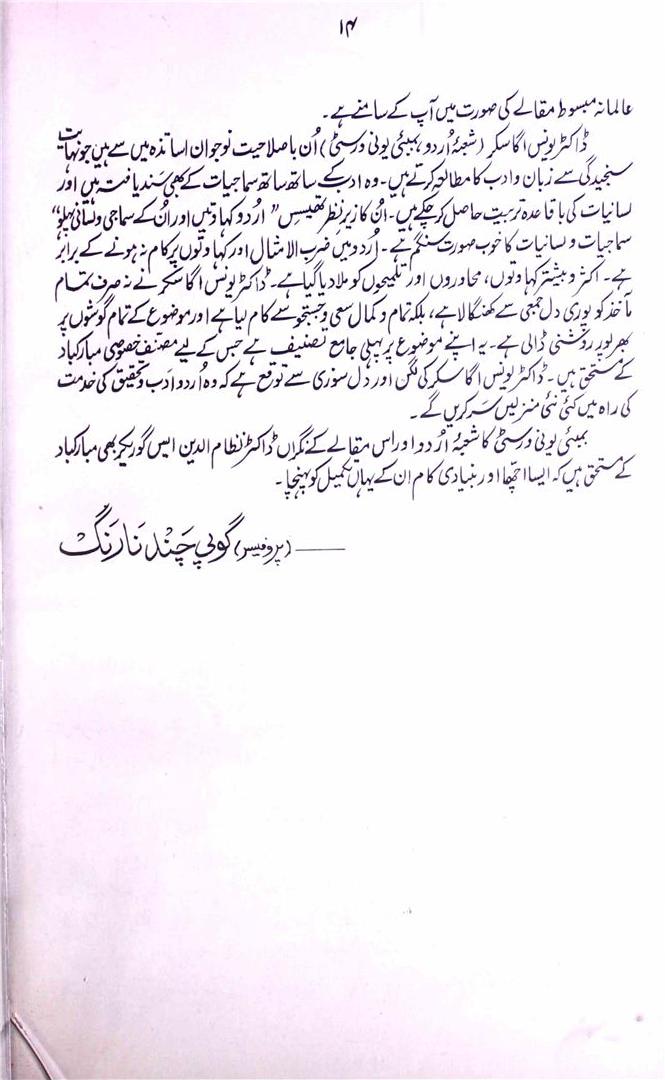 ۱۴
عالمانہ مبسوط مقالے کی صورت میں آپ کے سامنے ہے۔
ڈاکٹر یونس اگاسکر (شعبۂ اُردو، بمبئی یونی ورسٹی) اُن باصلاحیت نوجوان اساتذہ میں سے ہیں جو نہایت
سنجیدگی سے زبان و ادب کا مطالعہ کرتے ہیں۔ وہ ادب کے ساتھ ساتھ سماجیات کے بھی سَند یافتہ ہیں اور
لسانیات کی باقاعدہ تربیت حاصل کر چکے ہیں۔ اُن کا زیرِ نظر تھیسِس ”اُردو کہاوتیں اور اُن کے سماجی و لسانی پہلو“
سماجیات و لسانیات کا خوب صورت سنگم ہے۔ اُردو میں ضرب الامثال اور کہاوتوں پر کام نہ ہونے کے برابر
ہے۔ اکثر و بیشتر کہاوتوں، محاوروں اور تلمیحوں کو ملا دیا گیا ہے۔ ڈاکٹر یونس اگاسکر نے نہ صرف تمام
مآخذ کو پوری دل جمعی سے کھنگالا ہے، بلکہ تمام و کمال سعی و جستجو سے کام لیا ہے اور موضوع کے تمام گوشوں پر
بھرپور روشنی ڈالی ہے۔ یہ اپنے موضوع پر پہلی جامع تصنیف ہے جس کے لیے مصنف خصوصی مبارکباد
کے مستحق ہیں۔ ڈاکٹر یونس اگاسکر کی لگن اور دل سوزی سے توقع ہے کہ وہ اُردو ادب و تحقیق کی خدمت
کی راہ میں کئی نئی منزلیں سَر کریں گے۔
بمبئی یونی ورسٹی کا شعبۂ اُردو اور اس مقالے کے نگراں ڈاکٹر نظام الدین ایس گوریکر بھی مبارکباد
کے مستحق ہیں کہ ایسا اچھا اور بنیادی کام اِن کے یہاں تکمیل کو پہنچا۔
——— (پروفیسر) گوپی چَند نارنگ